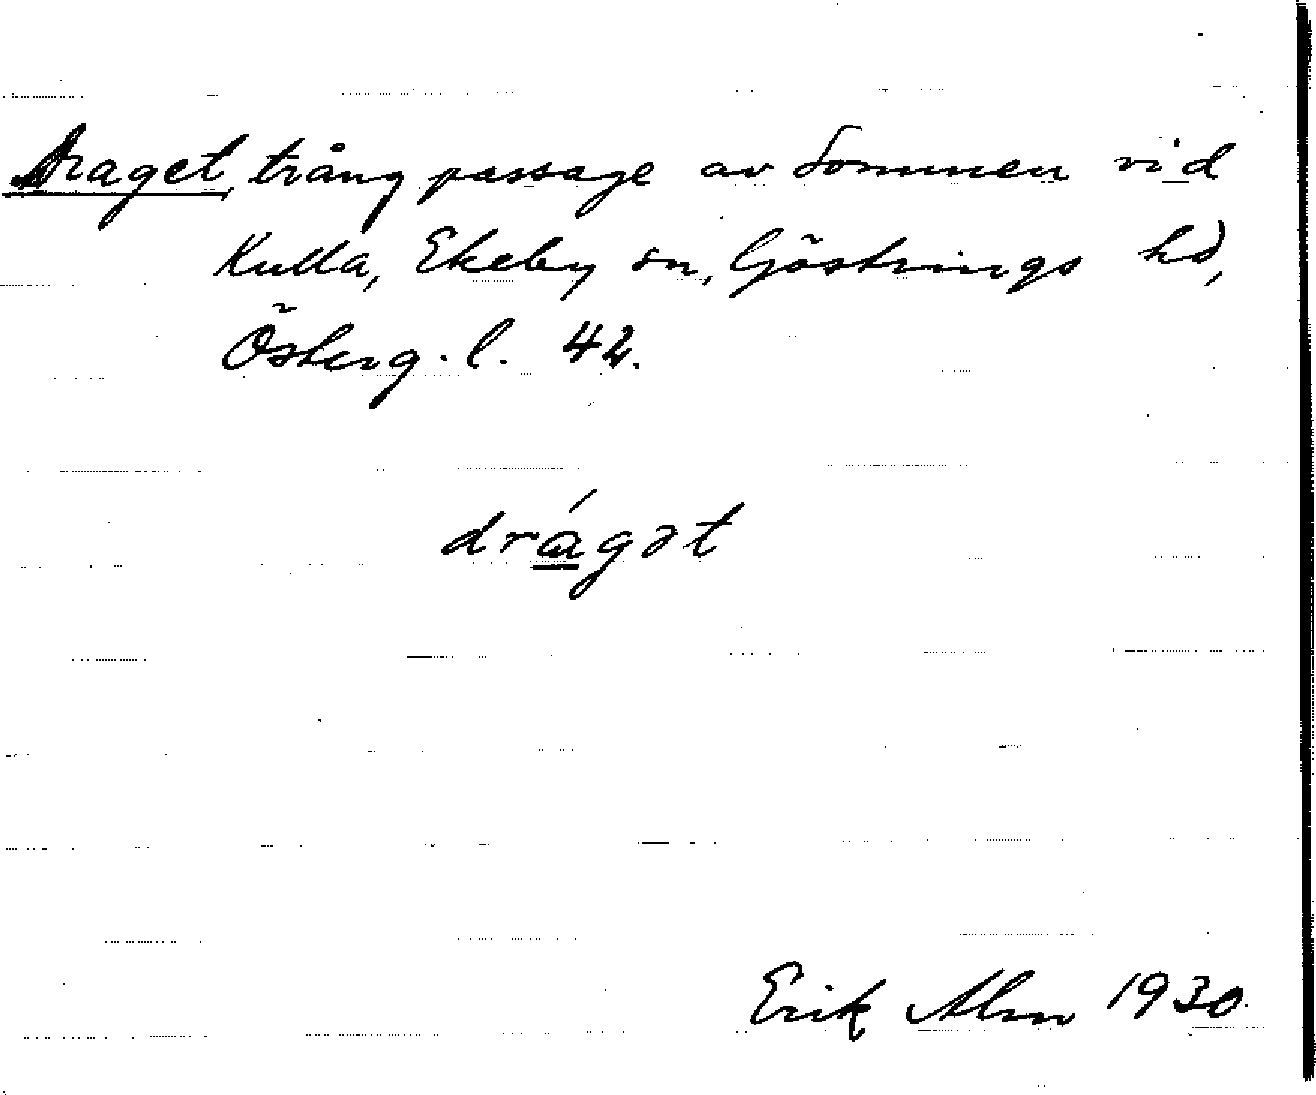 Draget, trång passage av Sommen vid
Kulla, Ekeby sn, Göstrings hd,
Österg. l. 42.
drágət
Erik Alm 1930.